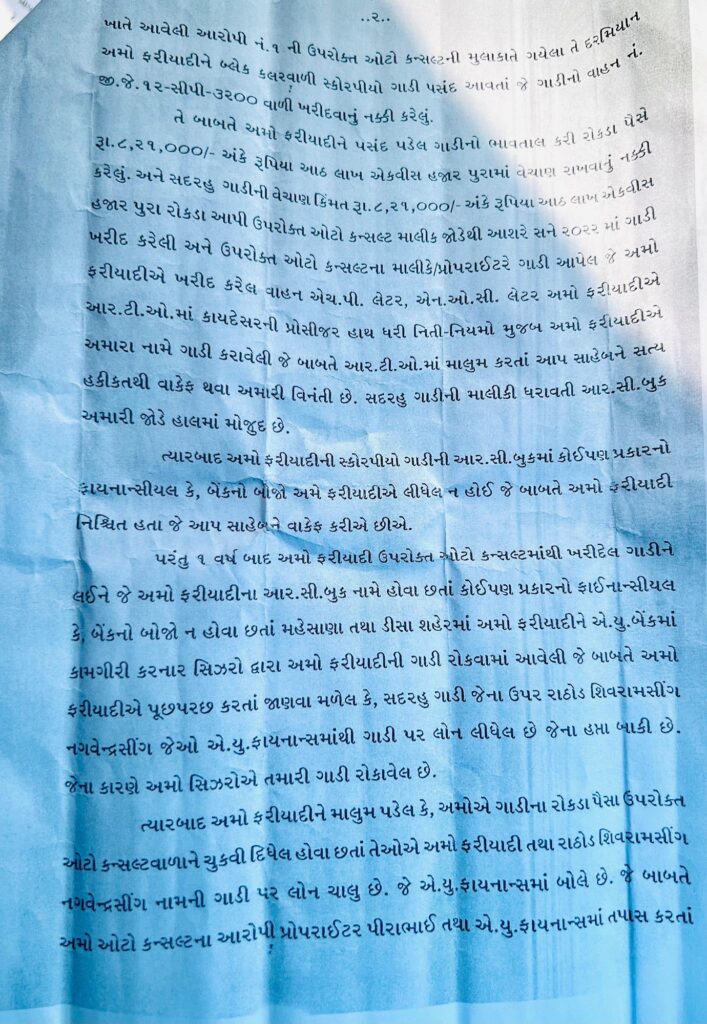 ..૨..
ખાતે આવેલી આરોપી નં.૧ ની ઉપરોક્ત ઓટો કન્સલ્ટની મુલાકાતે ગયેલા તે દરમિયાન
અમો ફરીયાદીને બ્લેક કલરવાળી સ્કોરપીયો ગાડી પસંદ આવતાં જે ગાડીનો વાહન નં.
જી.જે.૧૨-સીપી-૩૨૦૦ વાળી ખરીદવાનું નક્કી કરેલું.
તે બાબતે અમો ફરીયાદીને પસંદ પડેલ ગાડીનો ભાવતાલ કરી રોકડા પૈસે
રૂા.૮,૨૧,૦૦૦/- અંકે રૂપિયા આઠ લાખ એકવીસ હજાર પુરામાં વેચાણ રાખવાનું નક્કી
કરેલું. અને સદરહુ ગાડીની વેચાણ કિંમત રૂા.૮,૨૧,૦૦૦/- અંકે રૂપિયા આઠ લાખ એકવીસ
હજાર પુરા રોકડા આપી ઉપરોક્ત ઓટો કન્સલ્ટ માલીક જોડેથી આશરે સને ૨૦૨૨ માં ગાડી
ખરીદ કરેલી અને ઉપરોક્ત ઓટો કન્સલ્ટના માલીકે/પ્રોપરાઈટરે ગાડી આપેલ જે અમો
ફરીયાદીએ ખરીદ કરેલ વાહન એચ.પી. લેટર, એન.ઓ.સી. લેટર અમો ફરીયાદીએ
આર.ટી.ઓ.માં કાયદેસરની પ્રોસીજર હાથ ધરી નિતી-નિયમો મુજબ અમો ફરીયાદીએ
અમારા નામે ગાડી કરાવેલી જે બાબતે આર.ટી.ઓ.માં માલુમ કરતાં આપ સાહેબને સત્ય
હકીકતથી વાકેફ થવા અમારી વિનંતી છે. સદરહુ ગાડીની માલીકી ધરાવતી આર.સી.બુક
અમારી જોડે હાલમાં મોજુદ છે.
ત્યારબાદ અમો ફરીયાદીની સ્કોરપીયો ગાડીની આર.સી.બુકમાં કોઈપણ પ્રકારનો
ફાયનાન્સીયલ કે, બેંકનો બોજો અમે ફરીયાદીએ લીધેલ ન હોઈ જે બાબતે અમો ફરીયાદી
નિશ્ચિત હતા જે આપ સાહેબને વાકેફ કરીએ છીએ.
પરંતુ ૧ વર્ષ બાદ અમો ફરીયાદી ઉપરોક્ત ઓટો કન્સલ્ટમાંથી ખરીદેલ ગાડીને
લઈને જે અમો ફરીયાદીના આર.સી.બુક નામે હોવા છતાં કોઈપણ પ્રકારનો ફાઈનાન્સીયલ
કે, બેંકનો બોજો ન હોવા છતાં મહેસાણા તથા ડીસા શહેરમાં અમો ફરીયાદીને એ.યુ.બેંકમાં
કામગીરી કરનાર સિઝરો દ્વારા અમો ફરીયાદીની ગાડી રોકવામાં આવેલી જે બાબતે અમો
ફરીયાદીએ પૂછપરછ કરતાં જાણવા મળેલ કે, સદરહુ ગાડી જેના ઉપર રાઠોડ શિવરામસીંગ
નગવેન્દ્રસીંગ જેઓ એ.યુ.ફાયનાન્સમાંથી ગાડી પર લોન લીધેલ છે જેના હપ્તા બાકી છે.
જેના કારણે અમો સિઝરોએ તમારી ગાડી રોકાવેલ છે.
ત્યારબાદ અમો ફરીયાદીને માલુમ પડેલ કે, અમોએ ગાડીના રોકડા પૈસા ઉપરોક્ત
ઓટો કન્સલ્ટવાળાને ચુકવી દિધેલ હોવા છતાં તેઓએ અમો ફરીયાદી તથા રાઠોડ શિવરામસીંગ
નગવેન્દ્રસીંગ નામની ગાડી પર લોન ચાલુ છે. જે એ.યુ.ફાયનાન્સમાં બોલે છે. જે બાબતે
અમો ઓટો કન્સલ્ટના આરોપી પ્રોપરાઈટર પીરાભાઈ તથા એ.યુ.ફાયનાન્સમાં તપાસ કરતાં